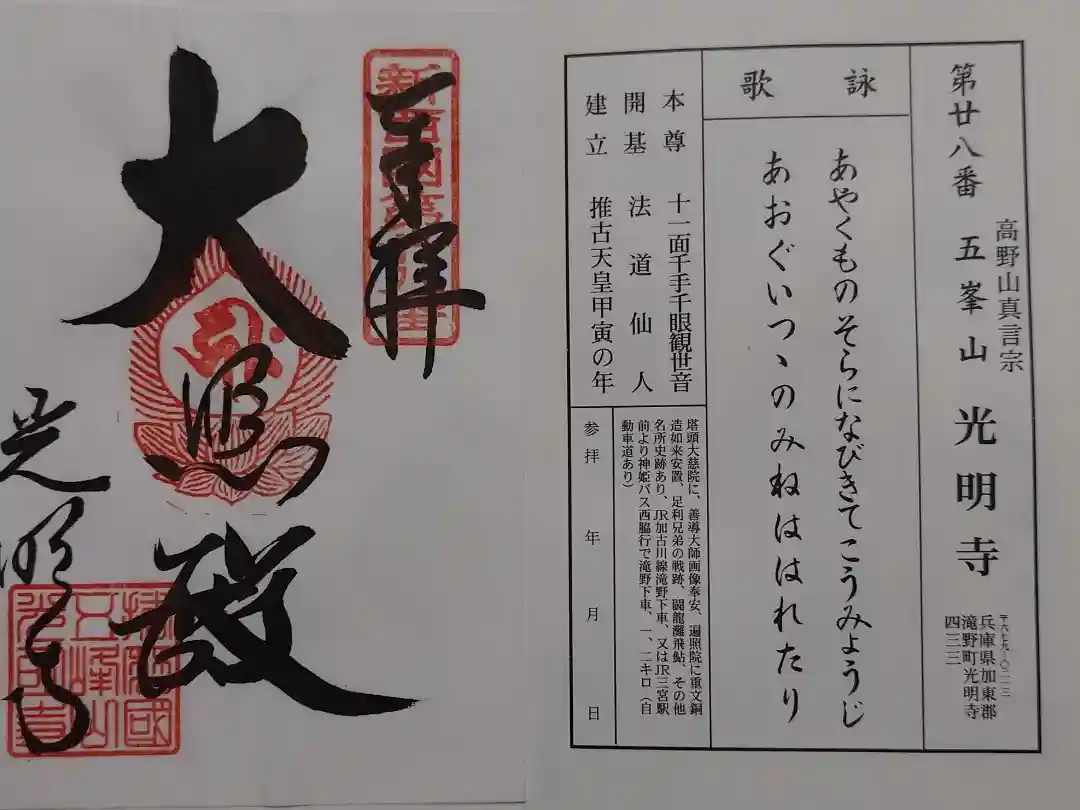 奉拝
大悲殿
光明寺
新西国第廿八番
播磨國
五峰山
光明寺
第廿八番 五峯山 光明寺
高野山真言宗
〒六七九―〇二一三
兵庫県加東郡
滝野町光明寺
四三三
詠歌
あやくものそらになびきてこうみょうじ
あおぐいつゝのみねははれたり
本尊 十一面千手千眼観世音
開基 法道仙人
建立 推古天皇甲寅の年
塔頭大慈院に、善導大師画像奉安、遍照院に重文銅
造如来安置、足利兄弟の戦跡、闘龍灘飛鮎、その他
名所史跡あり、JR加古川線滝野下車、又はJR三宮駅
前より神姫バス西脇行で滝野下車、一、二キロ（自
動車道あり）
参拝 年 月 日